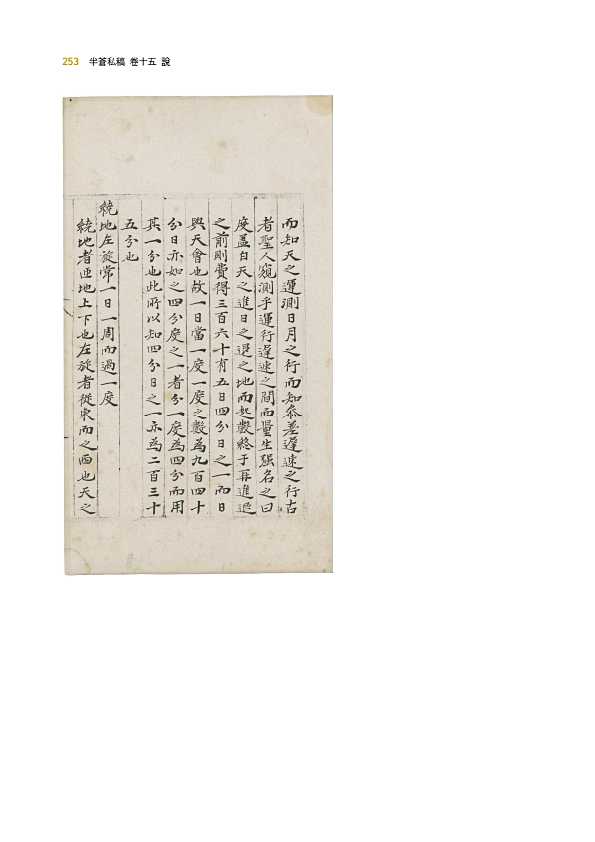 253 半蒼私稿 卷十五 說
而知天之運測日月之行而知叅差遲速之行古
者聖人窺測乎運行遲速之間而量生强名之曰
度盖自天之進日之退之地而起數終于再進退
之前則費得三百六十有五日四分日之一而日
與天會也故一日當一度一度之數為九百四十
分日亦如之四分度之一者分一度為四分而用
其一分也此所以知四分日之一亦為二百三十
五分也
繞地左旋常一日一周而過一度
繞地者匝地上下也左旋者從東而之西也天之